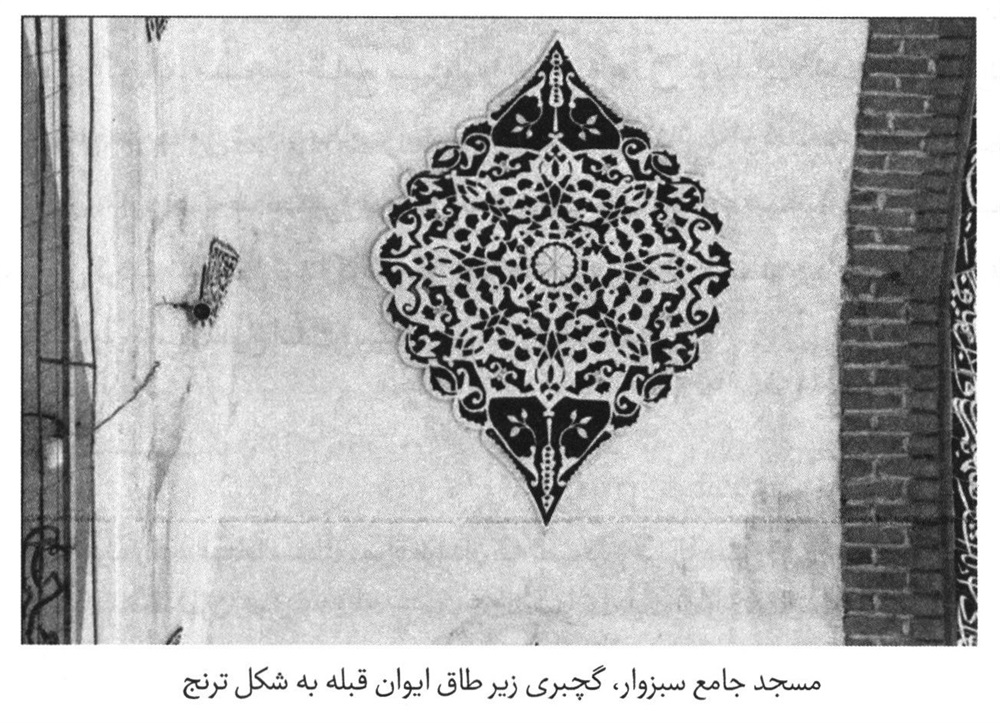 مسجد جامع سبزوار، گچبری زیر طاق ایوان قبله به شکل ترنج